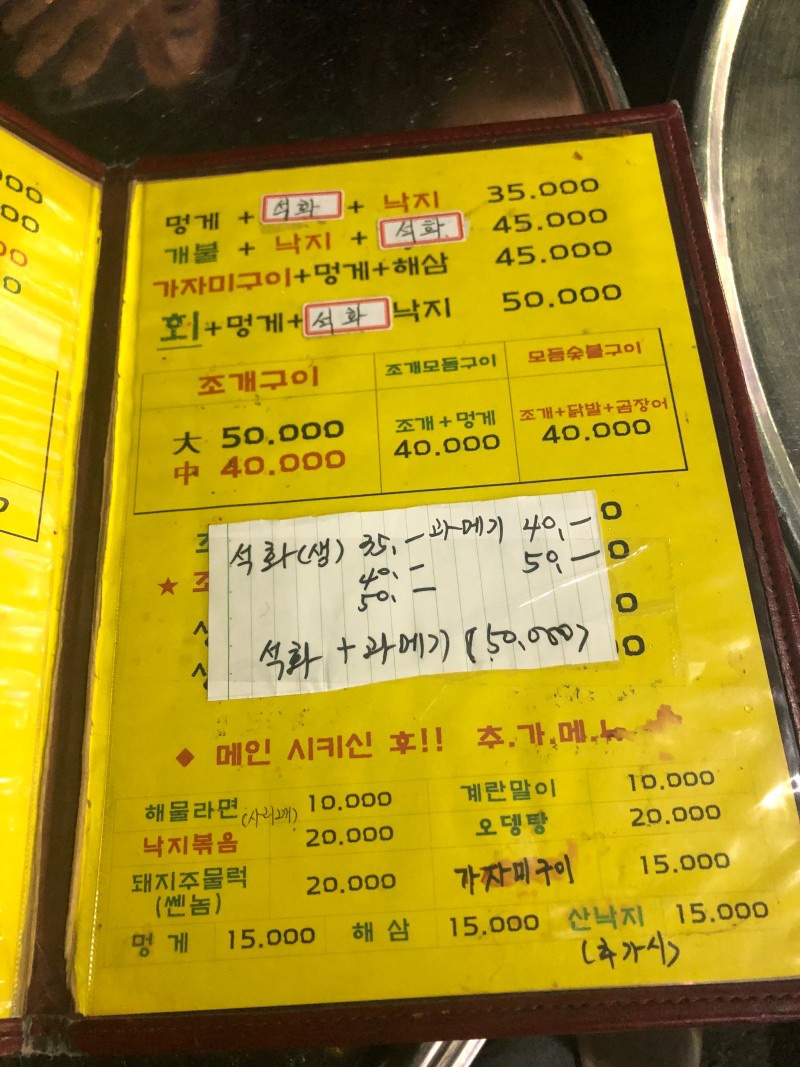 00
00
00
0
멍게 + 석화 + 낙지 35.000
개불 + 낙지 + 석화 45.000
가자미구이+멍게+해삼 45.000
회+멍게+석화 낙지 50.000
조개구이 조개모듬구이 모듬숯불구이
大 50.000 조개+멍게 조개+닭발+곰장어
中 40.000 40.000 40.000
석화(생) 35,- 과메기 40,- 0
40,- 50,- 0
50,- 0
석화 + 과메기 (50,000) 00
★
◆ 메인 시키신 후!! 추.가.메.뉴
해물라면 (사리2개) 10.000 계란말이 10.000
낙지볶음 20.000 오뎅탕 20.000
돼지주물럭 20.000 가자미구이 15.000
(쎈놈)
멍 게 15.000 해 삼 15.000 산낙지 15.000
(추가시)